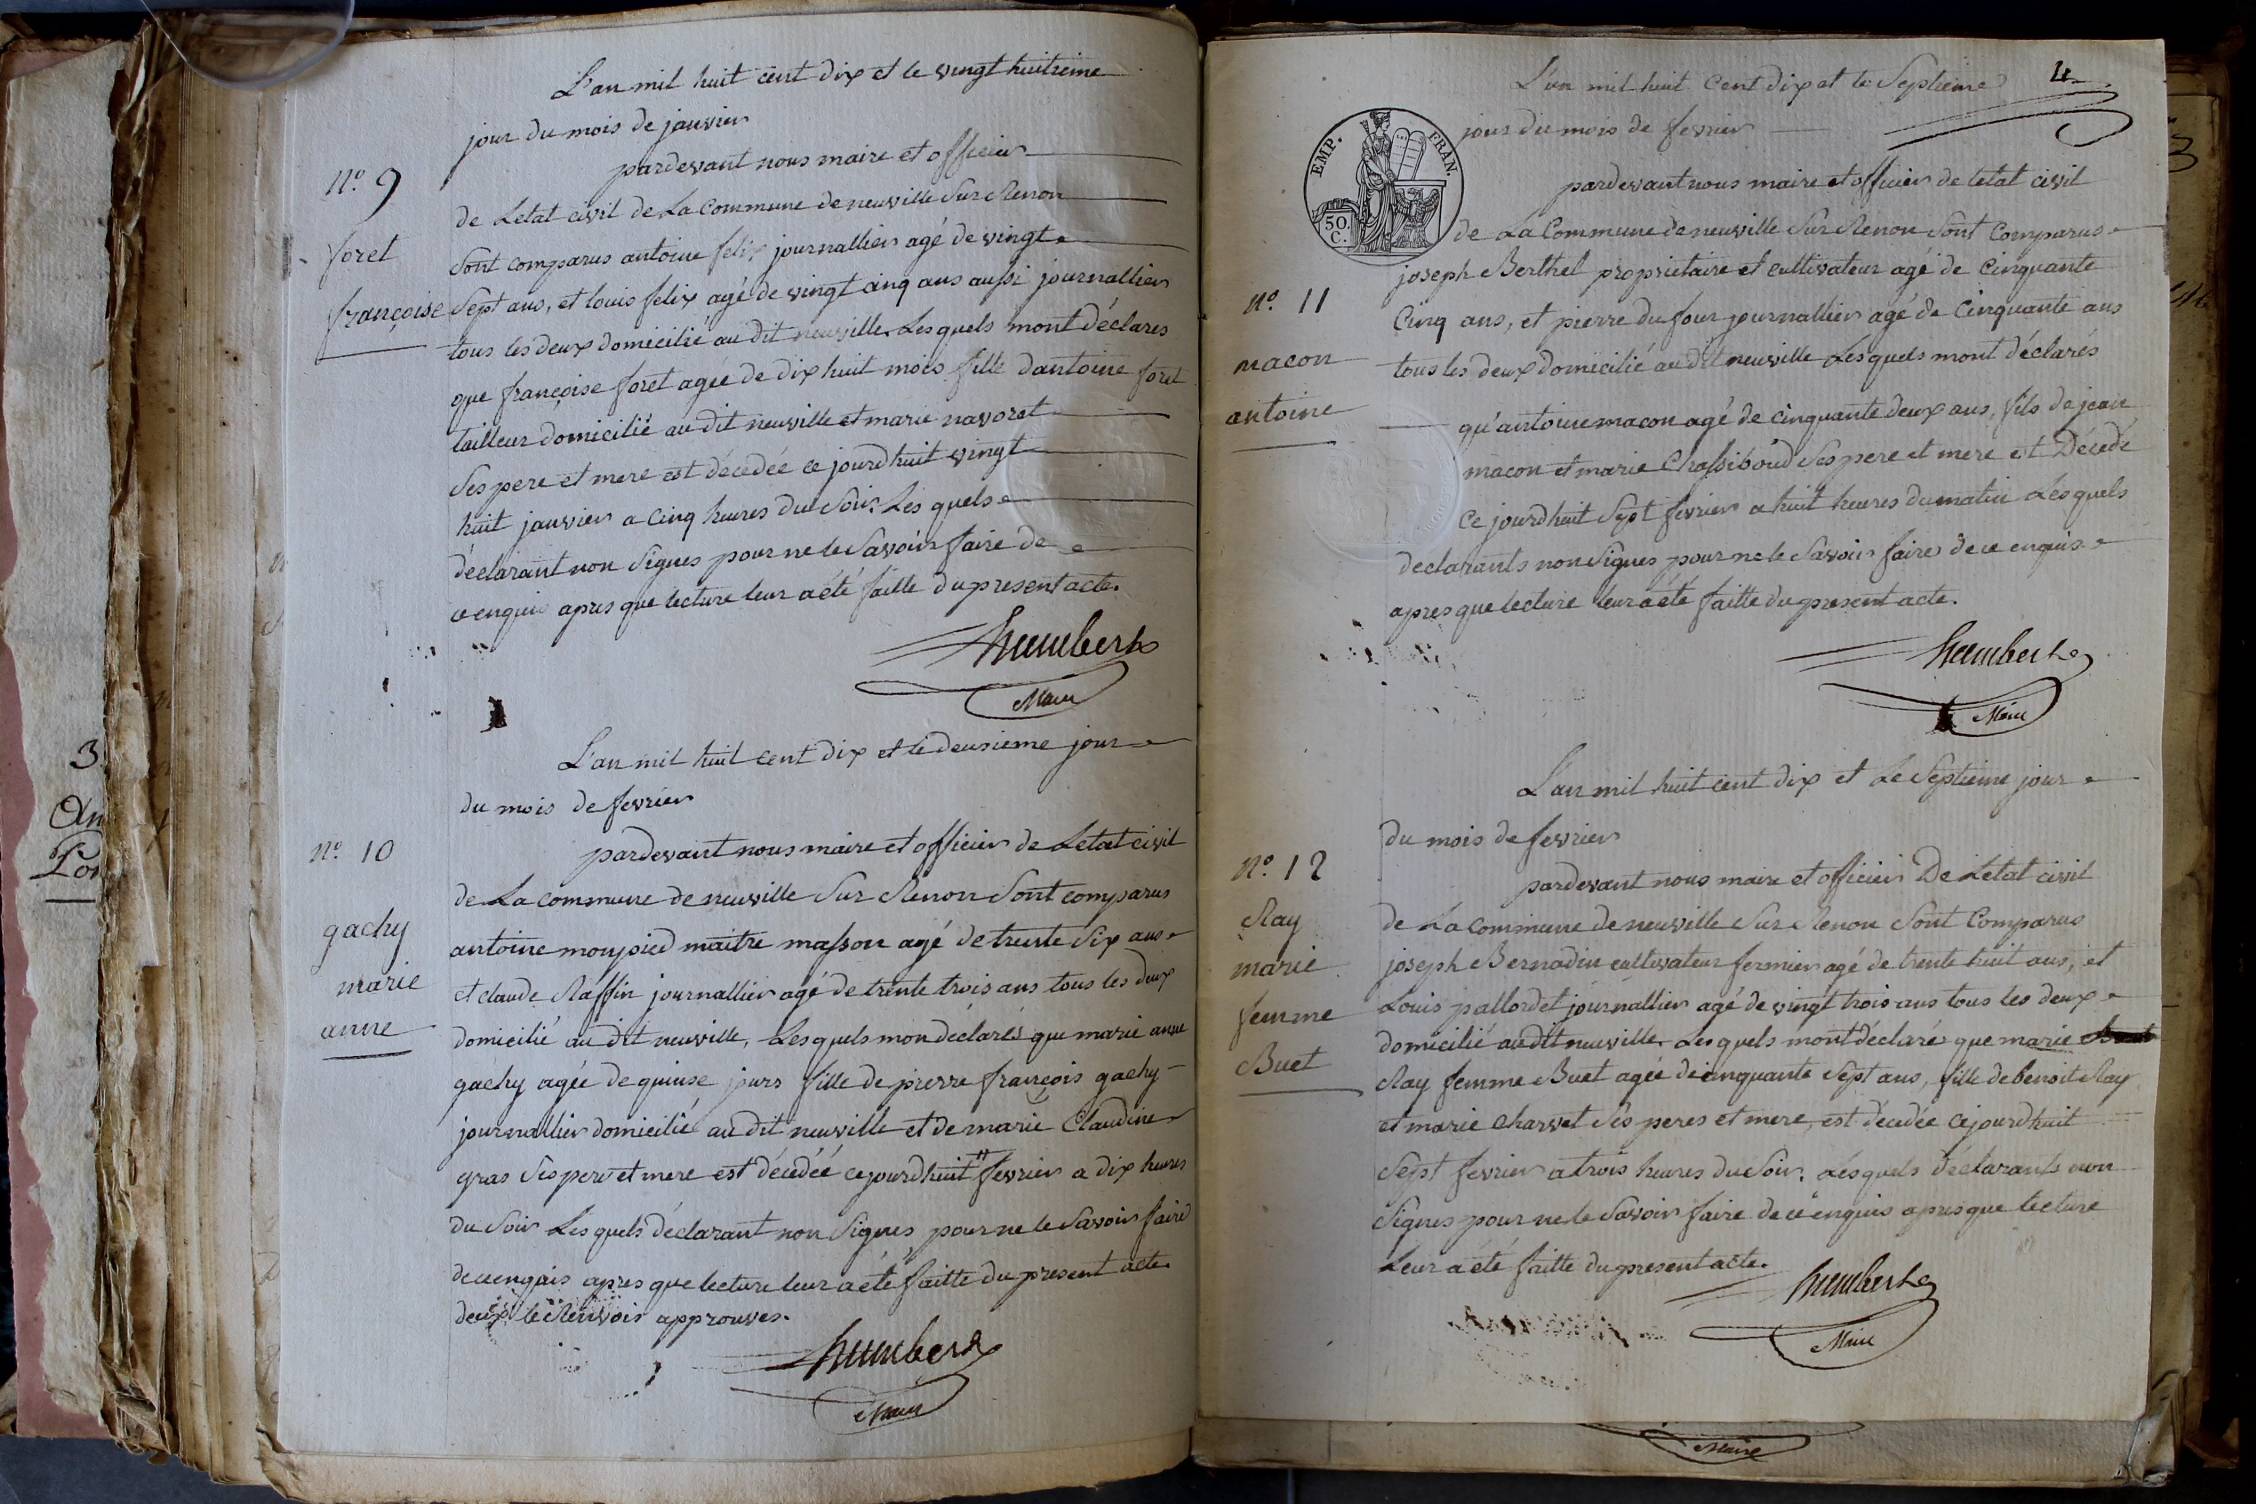 L'an mil huit cent dix et le vingt huitieme
jour du mois de janvier
pardevant nous maire et officier
N.o 9
de Letat civil de La commune de neuville Sur Renon
foret
Sont comparus antoine felix journallier agé de vingt
françoise
Sept ans, et louis felix agé de vingt cinq ans aussi journallier
tous les deux domicilié au dit neuville. Les quels mont déclarés
que françoise foret agée de dix huit mois fille dantoine foret
tailleur domicilié au dit neuville et marie navoret
Ses pere et mere est décédée ce jourdhuit vingt
huit janvier a cinq heures du Soir. Les quels
déclarant non Signes pour ne le Savoir faire de
ce enquis apres que lecture leur a été faitte du present acte.
humbert
Maire
L'an mil huit cent dix et le deusieme jour
du mois de fevrier
N.o 10
pardevant nous maire et officier de Letat civil
de La commune de neuville Sur Renon Sont comparus
gachy
antoine monpied maitre masson agé de trente Six ans
marie
et claude Raffin journallier agé de trente trois ans tous les deux
anne
domicilié au dit neuville, Les quels mon déclarés que marie anne
gachy agée de quinse jours fille de pierre françois gachy
journallier domicilié au dit neuville et de marie Claudine
gras Ses pere et mere est décédée ce jourdhuit fevrier a dix heures
du Soir Les quels déclarant non Signes pour ne le Savoir faire
de ce enquis apres que lecture leur a été faitte du present acte.
deux le Renvoir approuves.
humbert
Maire
4
L'an mil huit Cent dix et le Septieme
jour du mois de fevrier
EMP. FRAN.
50. C.
pardevant nous maire et officier de letat civil
de La Commune de neuville Sur Renon Sont Comparus
joseph Berthel proprietaire et cultivateur agé de Cinquante
N.o 11
Cinq ans, et pierre du four journallier agé de Cinquante ans
macon
tous les deux domicilié au dit neuville Les quels mont déclarés
antoine
qu'antoine macon agé de cinquante deux ans, fils de jean
macon et marie Chassiboud Ses pere et mere est Décédé
Ce jourdhuit Sept fevrier a huit heures du matin Les quels
declarants non Signes pour ne le Savoir faire de ce enquis
apres que lecture leur a été faitte du present acte.
humbert
Maire
L'an mil huit cent dix et Le Septieme jour
du mois de fevrier
N.o 12
pardevant nous maire et officier De Letat civil
Ray
de La Commune de neuville Sur Renon Sont Comparus
marie
joseph Bernadin cultivateur fermier agé de trente huit ans, et
femme
Louis pallordet journallier agé de vingt trois ans tous les deux
Buet
domicilié au dit neuville Les quels mont déclaré que marie
Ray femme Buet agée de cinquante Sept ans, fille de benoit Ray
et marie Charvet Ses peres et mere, est décédée ce jourdhuit
Sept fevrier a trois heures du Soir. Les quels déclarants non
Signes pour ne le Savoir faire de ce enquis apres que lecture
Leur a été faitte du present acte.
humbert
Maire
Maire